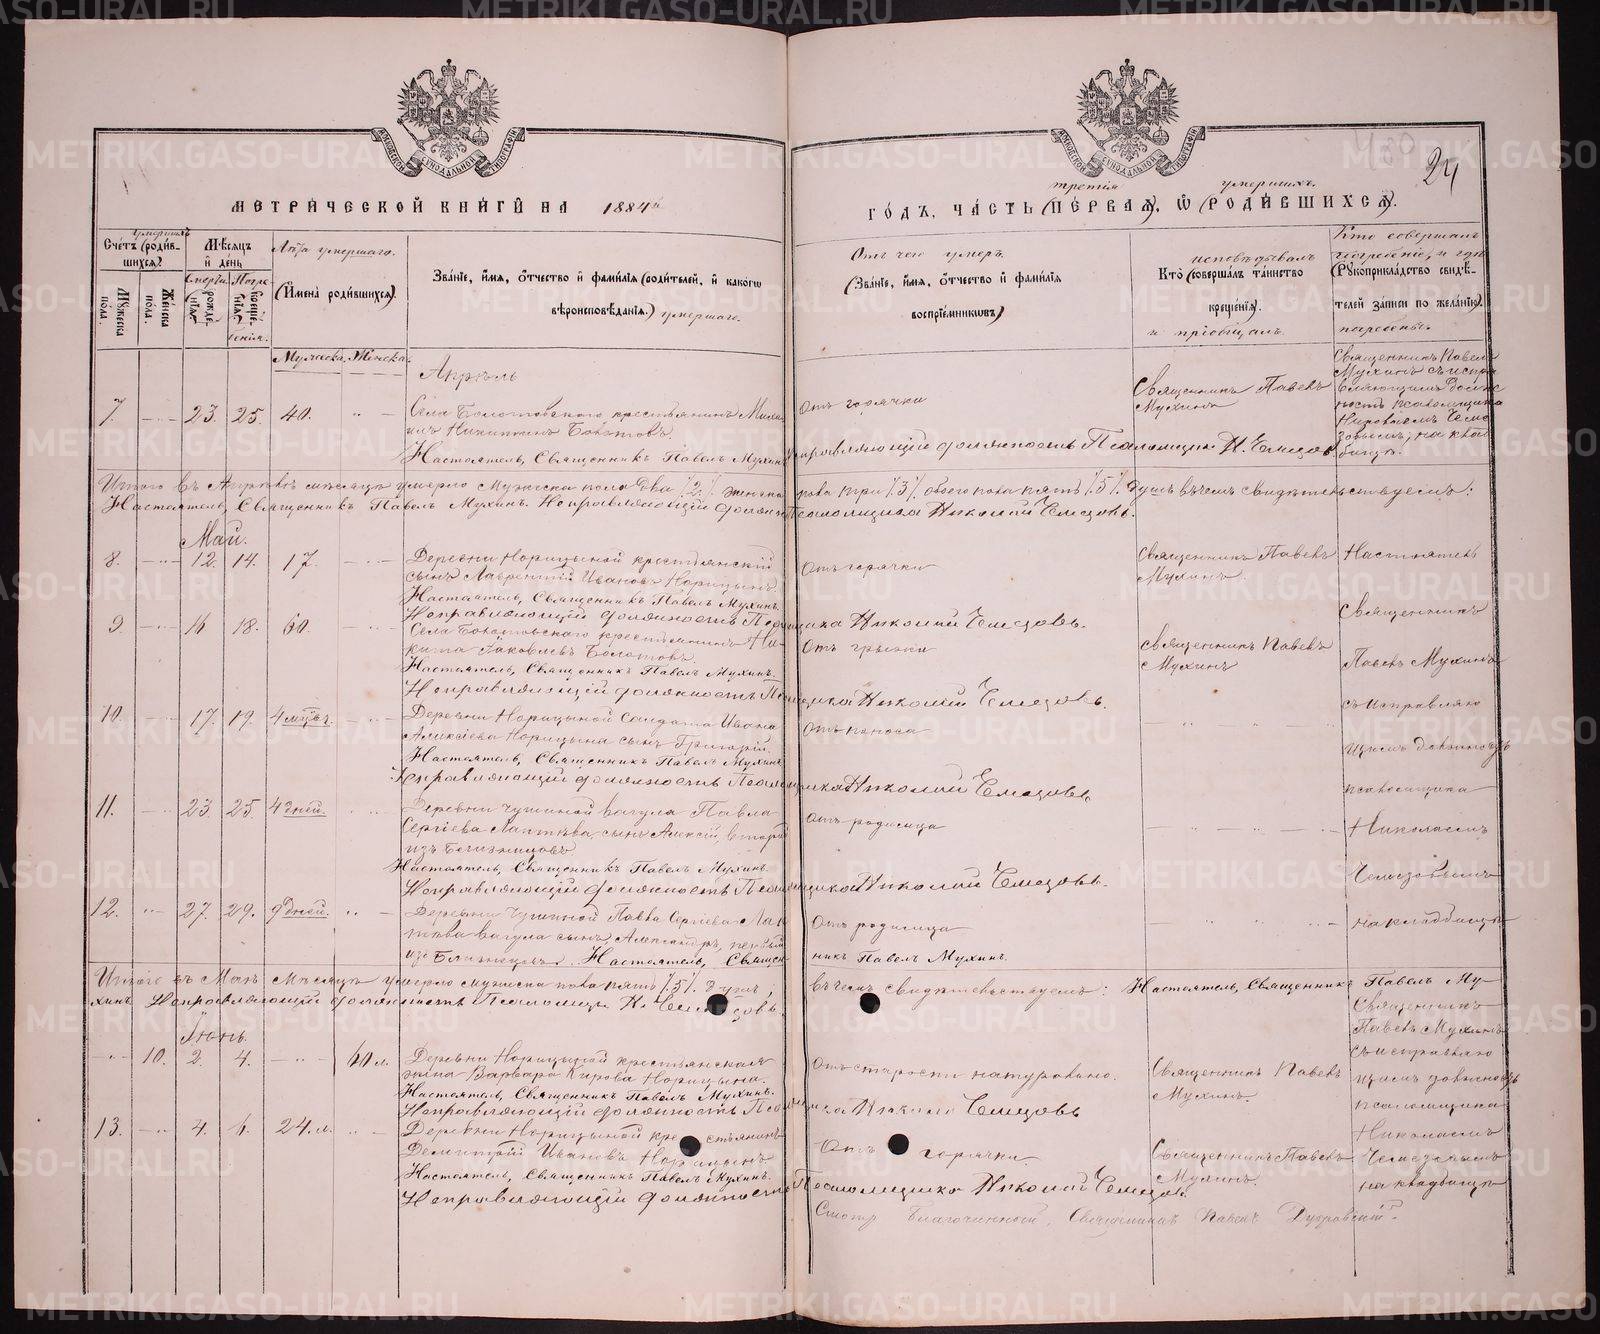 МЕТРИЧЕСКОЙ КНИГИ НА 1884й
третія умершихъ.
ГОДЪ, ЧАСТЬ (ПЕРВАЯ), Ѡ (РОДИВШИХСЯ).
24
умершихъ
Счетъ (родив-
шихся)
Мужеска пола.
Женска пола.
Мѣсяцъ
и день
Смерти
рожде-
нія
Погре-
креще-
нія.
бенія.
Лѣта умершаго.
(Имена родившихся).
Мужеска. Женска.
Званіе, имя, отчество и фамилія (родителей, и какого
вѣроисповѣданія.) умершаго.
Отъ чего умеръ.
(Званіе, имя, отчество и фамилія
воспріемниковъ)
исповѣдывалъ
Кто (совершалъ таинство
крещенія).
и пріобщалъ.
Кто совершалъ
погребеніе, и гдѣ
(Рукоприкладство свидѣ-
телей записи по желанію).
погребены.
Апрѣль
7. 23. 25. 40.
Села Болотовского крестьянинъ Миха-
илъ Никитинъ Болотовъ.
Настоятель, Священникъ Павелъ Мухинъ
Отъ горячки
Священникъ Павелъ
Мухинъ
Священникъ Павелъ
Мухинъ съ испра
вляющимъ долж
ность псаломщика
на клад
бищѣ.
Итого въ Апрѣлѣ мѣсяцѣ умерло мужеска пола два /2/ женска пола три /3/ обоего пола пять /5/ душъ въ чемъ свидѣтельствуемъ:
Настоятель, Священникъ Павелъ Мухинъ. Исправляющій должн. Псаломщика Николай
Май.
8. 12. 14. 17.
Деревни Норицыной крестьянскій
сынъ Лаврентій Ивановъ Норицынъ.
Настоятель, Священникъ Павелъ Мухинъ.
Исправляющій должность Псаломщика Николай
Отъ горячки
Священникъ Павелъ
Мухинъ.
Настоятель
Священникъ
9. 16 18. 60.
Села Болотовского крестьянинъ Ни-
кита Яковлевъ Болотовъ.
Настоятель, Священникъ Павелъ Мухинъ.
Исправляющій должность Псаломщика Николай
Отъ грыжи
Священникъ Павелъ
Мухинъ
Павелъ Мухинъ
10. 17. 19. 4 мѣсъ.
Деревни Норицыной солдата Ивана
Алексіева Норицына сынъ Григорій.
Настоятель, Священникъ Павелъ Мухинъ
Исправляющій должность Псаломщика Николай
Отъ поноса
съ исправляю
щимъ должность
псаломщика
11. 23. 25. 4 дней.
Деревни вагула Павла
Сергіева Лаптева сынъ Алексій, второй
изъ близнецовъ
Настоятель, Священникъ Павелъ Мухинъ.
Исправляющій должность Псаломщика Николай
Отъ родимца
Николаемъ
12. 27. 29. 9 дней.
Деревни Павла Сергіева Лап
тева вагула сынъ Александръ, первый
изъ близнецовъ. Настоятель, Священ
никъ Павелъ Мухинъ.
Отъ родимца
на кладбищѣ
Итого въ Маѣ мѣсяцѣ умерло мужеска пола пять /5/ душъ, въ чемъ свидѣтельствуемъ: Настоятель, Священникъ Павелъ Му-
хинъ. Исправляющій должность Псаломщ. Н.
Іюнь.
10. 2. 4. 60 л.
Деревни Норицыной крестьянская
жена Варвара Кирова Норицына.
Настоятель, Священникъ Павелъ Мухинъ.
Исправляющій должность Псаломщика Николай
Отъ старости натурально.
Священникъ Павелъ
Мухинъ.
Священникъ
Павелъ Мухинъ
съ исправляю
щимъ должность
псаломщика
Николаемъ
13. 4. 6. 24. л.
Деревни Норицыной крестьянинъ
Димитрій Ивановъ Норицынъ.
Настоятель, Священникъ Павелъ Мухинъ.
Исправляющій должность Псаломщика Николай
Отъ горячки.
Священникъ Павелъ
Мухинъ.
на кладбищѣ
Смотр Благочинный, Священникъ Павелъ
METRIKI.GASO-URAL.RU